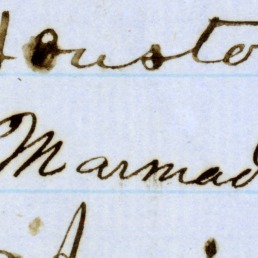 Housto
Marmad